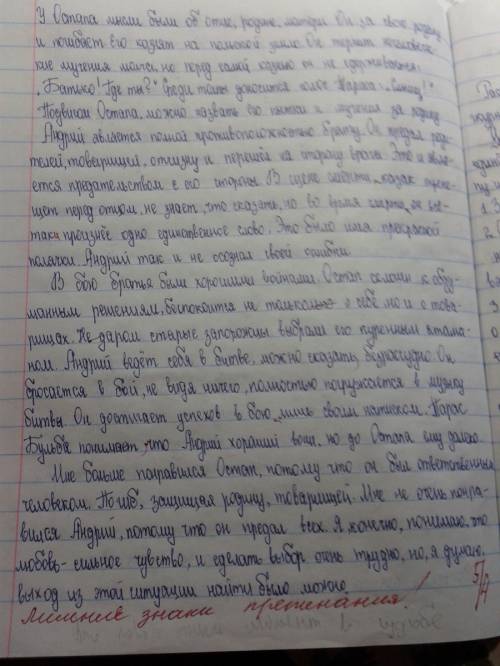 У Остапа мысли были об отце, родине, матери. Он за свою родину
и погибает. Его казнят на польской земле. Он терпит нечеловечес-
кие мучения молча, но перед самой казнью он не сдерживается:
„Батько! Где ты?" Среди толпы доносится голос Тараса: „Слышу!"
Подвигом Остапа, можно назвать его пытки и мучения за родину
Андрий является полной противоположностью брату. Он предал роди-
телей, товарищей, отчизну и перешёл на сторону врага. Это и явля-
ется предательством с его стороны. В сцене гибели, казак трепе-
щет перед отцом, не знает, что сказать, но во время смерти, он всё-
таки произнёс одно единственное слово. Это было имя прекрасной
полячки. Андрий так и не осознал своей ошибки.
В бою братья были хорошими войнами. Остап склонен к обду-
манным решениям, беспокоится не только о себе, но и о това-
рищах. Не даром старые запорожцы выбрали его куренным атама-
ном. Андрий ведёт себя в битве, можно сказать, безрассудно. Он
бросается в бой, не видя ничего, полностью погружается в музыку
битвы. Он достигает успехов в бою, лишь своим натиском. Тарас
Бульба понимает, что Андрий хороший воин, но до Остапа ему далеко.
Мне больше понравился Остап, потому что он был ответственным
человеком. Погиб, защищая родину, товарищей. Мне не очень понра-
вился Андрий, потому что он предал всех. Я, конечно, понимаю, что
любовь - сильное чувство, и сделать выбор очень трудно, но, я думаю,
выход из этой ситуации найти было можно.
5/4
Лишние знаки препинания!